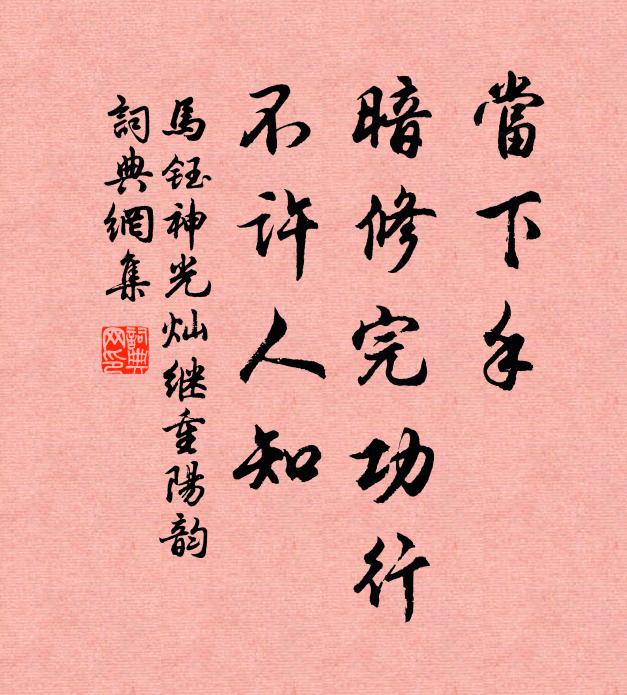 當下手
暗修完功行
不許人知
馬鈺神光灿继重陽韵
詞典網集
詞典
网印